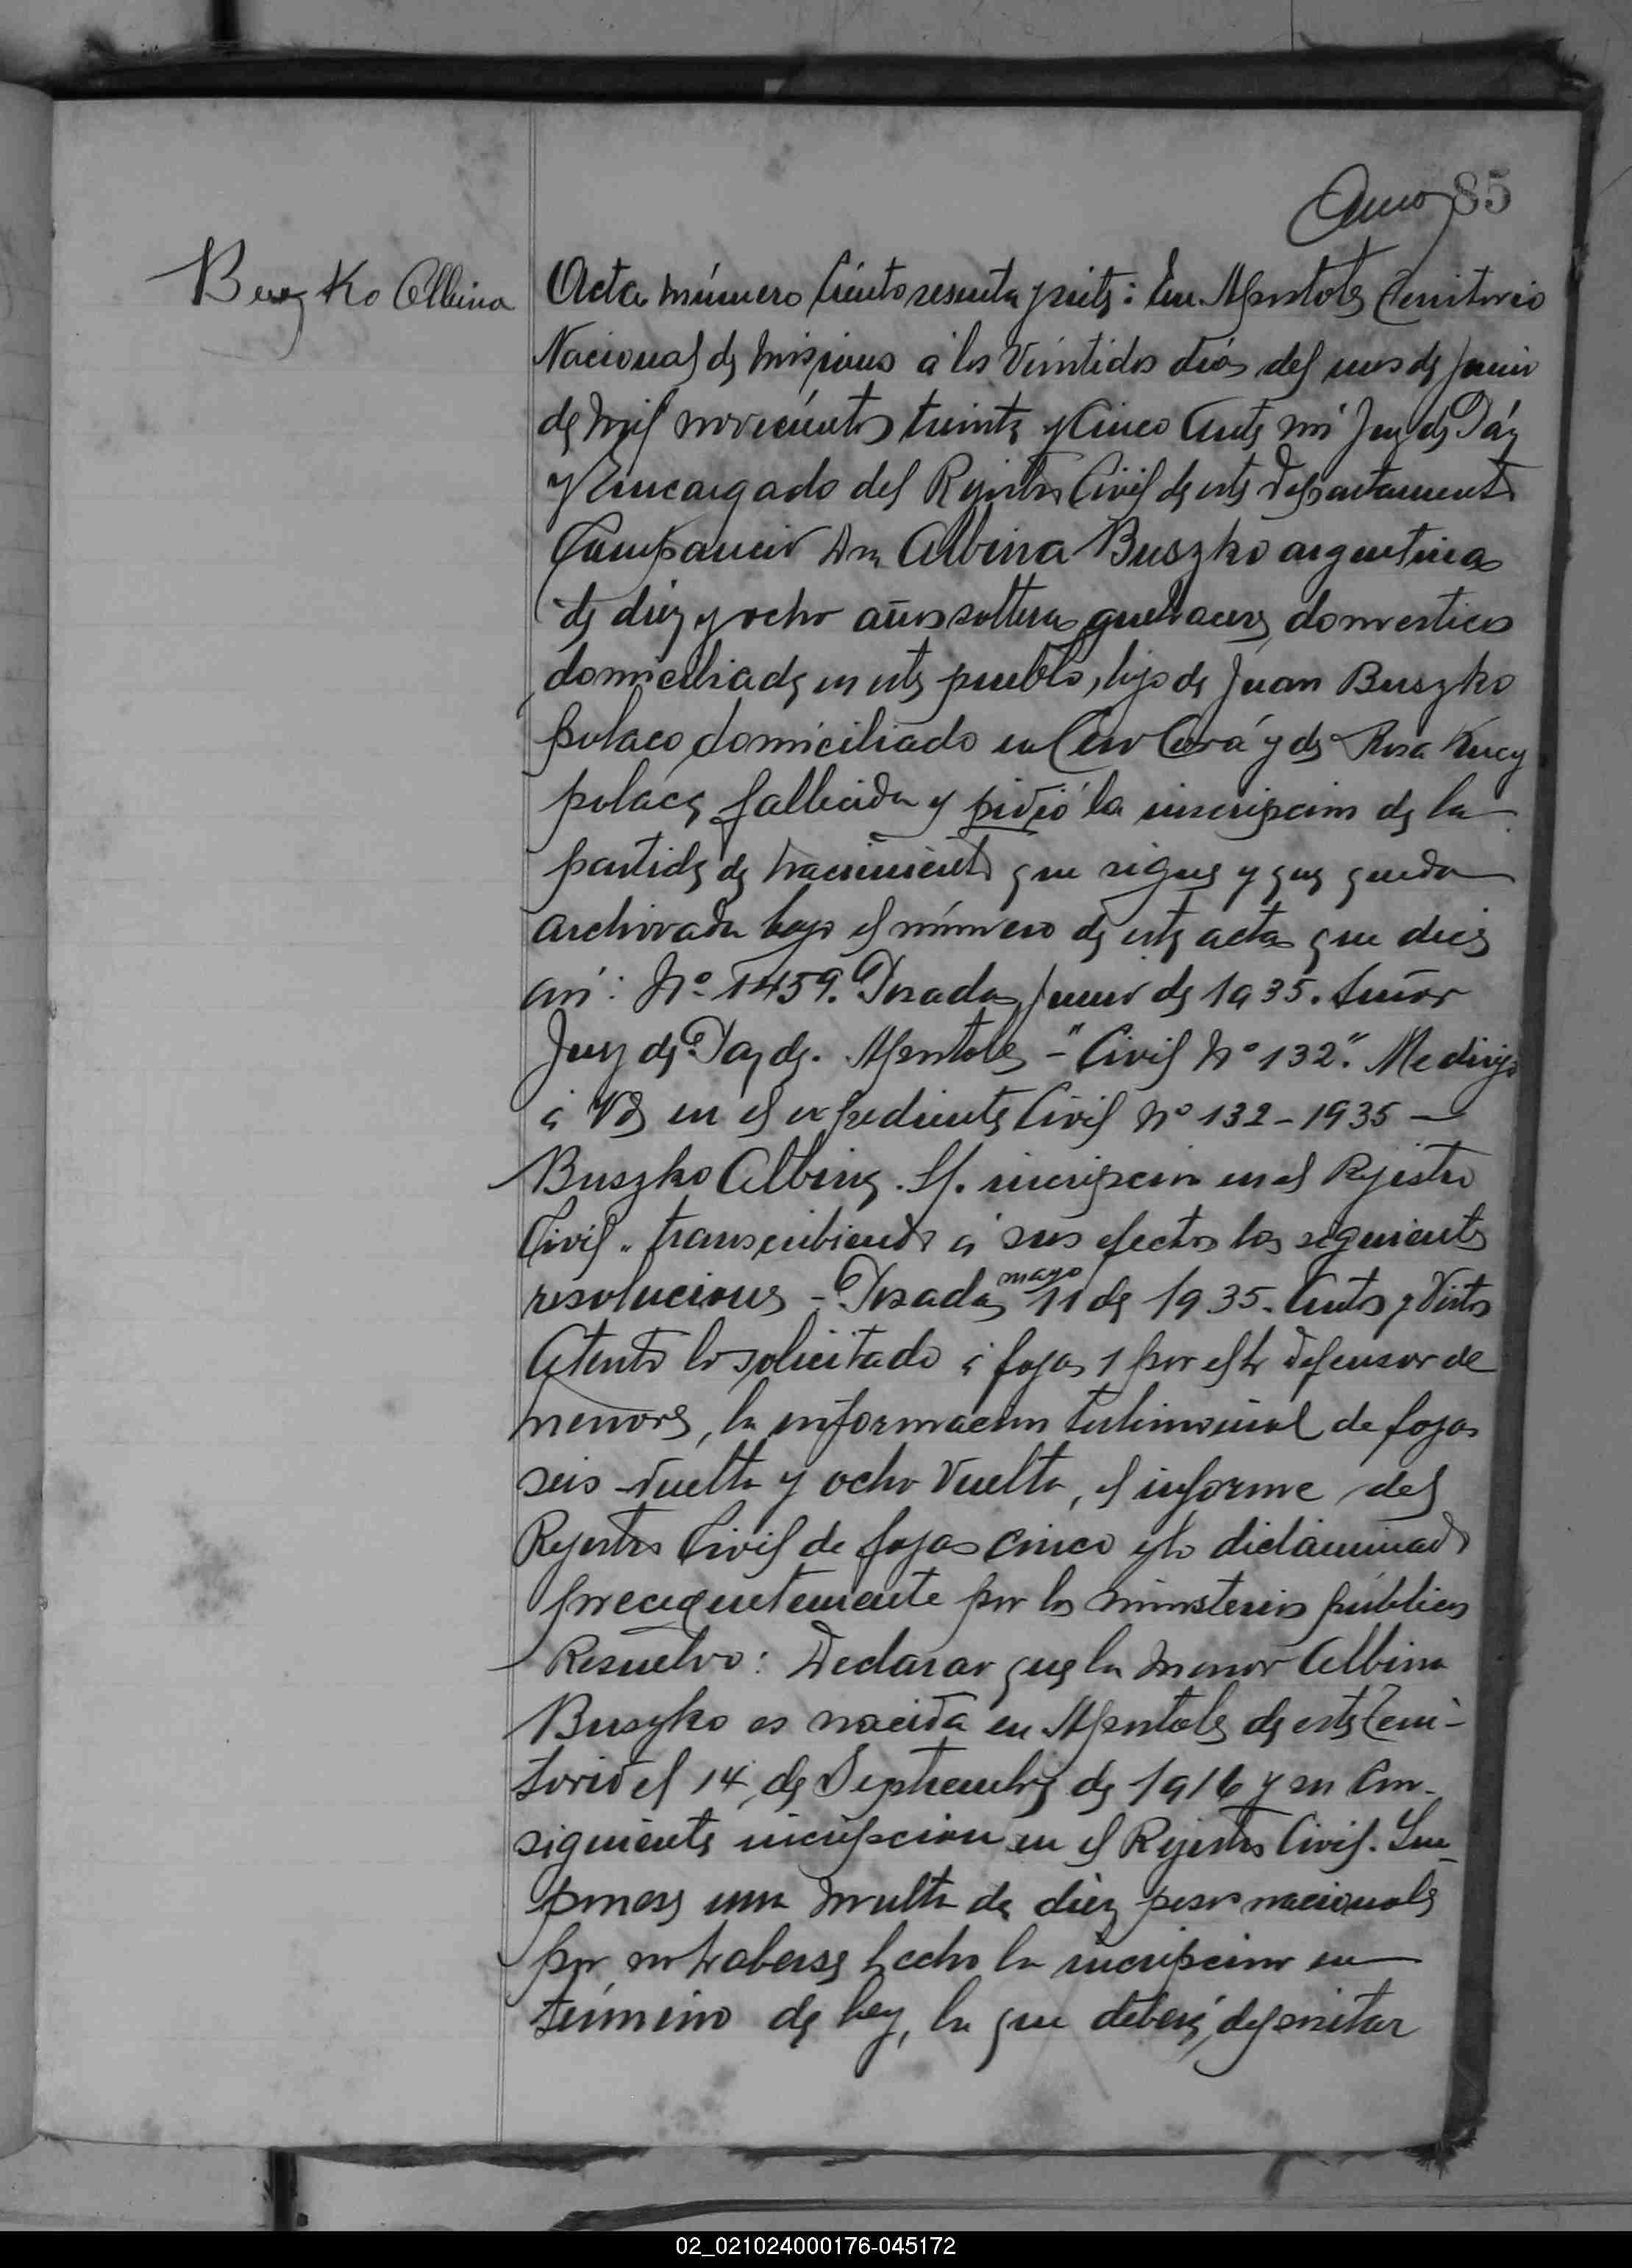 85
Buszko Albina
Acta número Ciento sesenta y siete: En Apostoles Territorio
Nacional de Misiones a los Veintidos dias del mes de Junio
de mil novecientos treinta y Cinco Ante mi Juez de Páz
y Encargado del Rejistro Civil de este departamento
Compareció Dña Albina Buszko argentina
de diez y ocho años soltera quehaceres domesticos
domiciliada en este pueblo, hija de Juan Buszko
polaco domiciliado en Cerro Corá y de Rosa Kucy
polaca fallecida y pidió la inscripcion de la
partida de nacimiento que sigue y que queda
archivada bajo el número de este acta que dice
así: Nº 1459. Posadas, Junio de 1935. Señor
Juez de Paz de. Apostoles - "Civil Nº 132". Me dirijo
á Vd en el expediente Civil Nº 132-1935 —
Buszko Albina. S/. incripcion en el Rejistro
Civil" transcribiendo á sus efectos las siguientes
resoluciones - Posadas mayo 11 de 1935. Autos y Vistos
Atento lo solicitado á fojas 1 por el Sr defensor de
menores, la informacion testimonial de fojas
seis vuelta y ocho vuelta, el informe del
Rejistro Civil de fojas cinco y lo dictaminado
precedentemente por los ministerios públicos
Resuelvo: Declarar que la menor Albina
Buszko es nacida en Apostoles de este Terri-
torio el 14 de Septiembre de 1916 y su Con-
siguiente incripcion en el Rejistro Civil. Im-
ponese una multa de diez pesos nacionales
por no haberse hecho la incripcion en
término de ley, la que deberá depositar
02_021024000176-045172